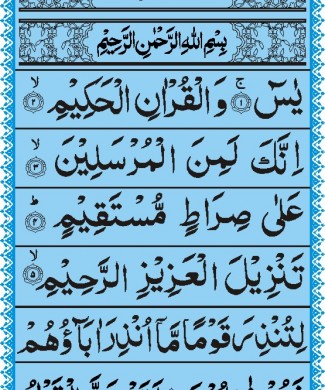 بِسْمِ اللهِ الرَّحْمٰنِ الرَّحِيْمِ
يٰسٓ ۚ﴿۱﴾ وَالْقُرْاٰنِ الْحَكِيْمِ ۙ﴿۲﴾
اِنَّكَ لَمِنَ الْمُرْسَلِيْنَ ۙ﴿۳﴾
عَلٰى صِرَاطٍ مُّسْتَقِيْمٍ ؕ﴿۴﴾
تَنْزِيْلَ الْعَزِيْزِ الرَّحِيْمِ ۙ﴿۵﴾
لِتُنْذِرَ قَوْمًا مَّاۤ اُنْذِرَ اٰبَآؤُهُمْ